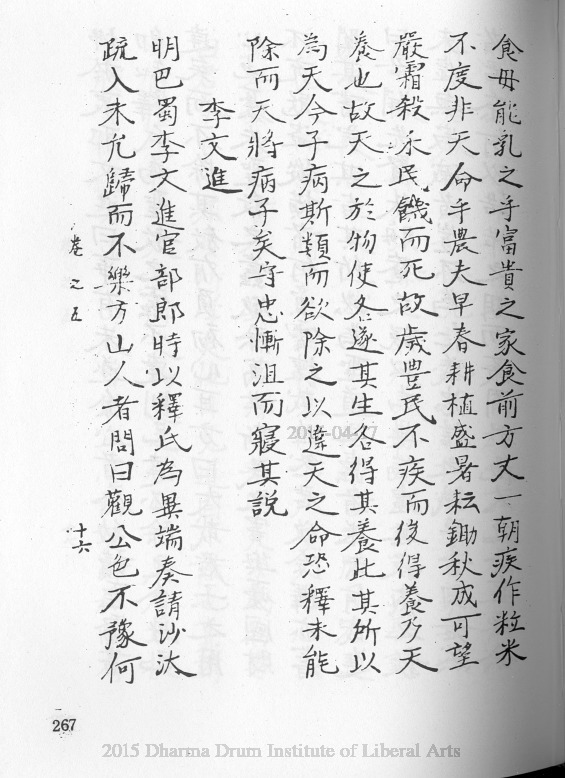 食毋能乳之乎富貴之家食前方丈一朝疾作粒米
不度非天命乎農夫早春耕植盛暑耘鋤秋成可望
嚴霜殺禾民饑而死故歲豐民不疾而後得養乃天
養也故天之於物使各遂其生各得其養此其所以
為天今子病斯類而欲除之以違天之命恐釋未能
除而天將病子矣守忠慚沮而寢其說
李文進
明巴蜀李文進官部郎時以釋氏為異端奏請沙汰
疏入未允歸而不樂方山人者問曰觀公色不豫何
卷之五
十六
267
2015 Dharma Drum Institute of Liberal Arts